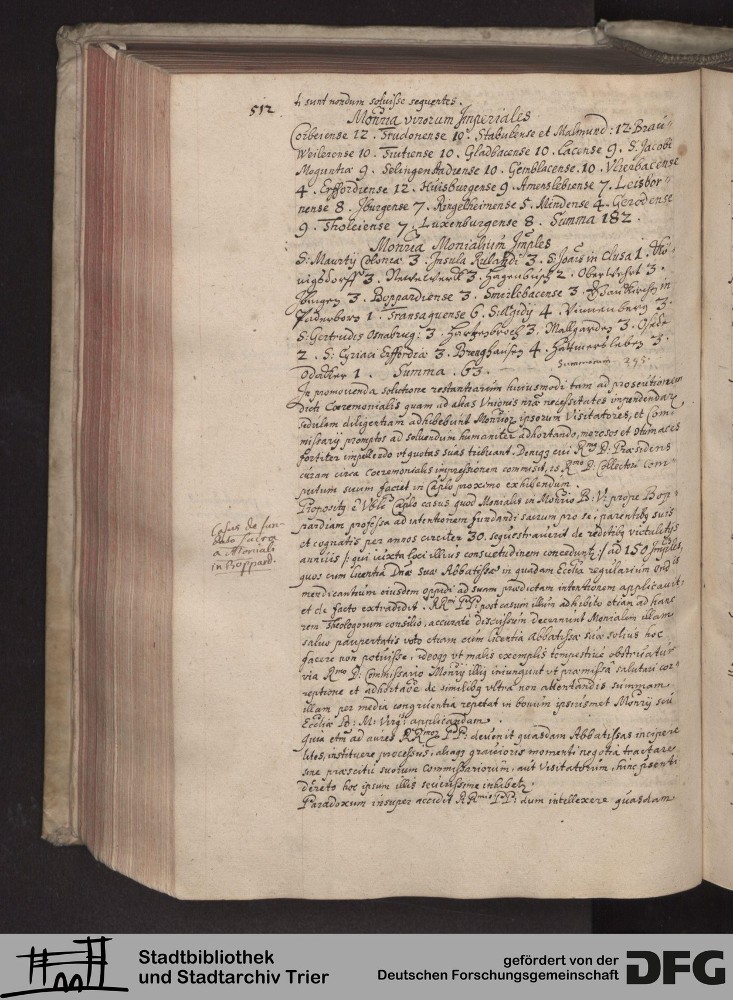 512
ti sunt nondum soluisse sequentes.
Monria virorum Imperiales
Corbeiense 12. Trudonense 10. Stabulense et Malmund: 12. Brau-
weilerense 10. Tuitiense 10. Gladbacense 10. Lacense 9. S. Jacobi
Moguntiæ 9. SelingenStadiense 10. Gemblacense 10. Vlierbacense
4. Erffordiense 12. Huisburgense 9. Amerslebiense 7. Leisbor-
nense 8. Iburgense 7. Ringelheimense 5. Mindense 4. Gerodense
9. Tholeiense 7. Luxenburgense 8. Summa 182.
Monria Monialium Imples
S: Mauritij Coloniæ 3. Insula Rulandi 3. S. Joais in Clusa 1.
nigsdorff 3. 3. Hagenbusch 2. Oberwehrt 3.
3. Boppardiense 3. Smerlebacense 3. in
Paderborn 1. Transaquense 6. S: Ægidij 4. Vinnenberg 3.
S: Gertrudis Osnabrug: 3. Hartzebroch 3. Mallgarden 3.
2. S: Cyriaci Erffordiæ 3. Brenghausen 4. Hatmersleben 3.
1. Summa. 63. Summarum 245.
In promouenda solutione restantiarum huiusmodi tam ad prosecutionem
dicti Cæremonialis quam ad alias Vnionis nræ necessitates impendendar
sedulam diligentiam adhibebunt Monrior ipsorum Visitatores, et Com-
missarij promptos ad soluendum humaniter adhortando, morosos et
fortiter impellendo vt quotas suas tribuant. Denique cui Rmus D: Præsidens
curam circa Cœremonialis impressionem commisit, is Rmo D: Collectori com-
putum suum faciet in Caplo proximo exhibendum.
Proposito è Vble Caplo casus quod Monialis in Monrio B: V: prope Bop-
pardiam professa ad intentionem fundandi sacrum pro se, parentibus suis
et cognatis per annos circiter 30. sequestrauerit de reditibus vitalitijs
annuis qui iuxta loci illius consuetudinem conceduntur ad 150 Imples,
quos cum licentia Dnæ suæ Abbatissæ in quadam Ecclia regularium ordis
mendicantium eiusdem oppidi ad suam prædictam intentionem applicauit
et de facto extradidit. RRmi PP: post casum illum adhibito etiam ad hanc
rem Theologorum consilio, accuratè discussum decreuerunt Monialem illam
saluo paupertatis voto etiam cum licentia Abbatissæ suæ solius hoc
facere non potuisse, ideoque vt malis exemplis tempestiuè obstruatur
via Rmo D: Commissario Monrij illius iniungunt vt præmissâ salutari cor-
reptione et adhortaoe de similibus vltra non attentandis summam
illam per media congruentia repetat in bonum ipsiusmet Monrij seu
Eccliæ B: M: Virgis applicandam.
Quia etm ad aures RRmor PP: deuenit quasdam Abbatissas incipere
lites, instituere processus, aliaque grauioris momenti negotia tractare
sine præscitu suorum Commissariorum, aut Visitatorum, hinc præsenti
decreto hoc ipsum illis seuerissimè inhibetur.
Paradoxum insuper accidit RRmis PP: dum intellexere quasdam
Casus de fun-
dato sacro
a Moniali
in Boppard.
Stadtbibliothek
und Stadtarchiv Trier
gefördert von der
Deutschen Forschungsgemeinschaft
DFG